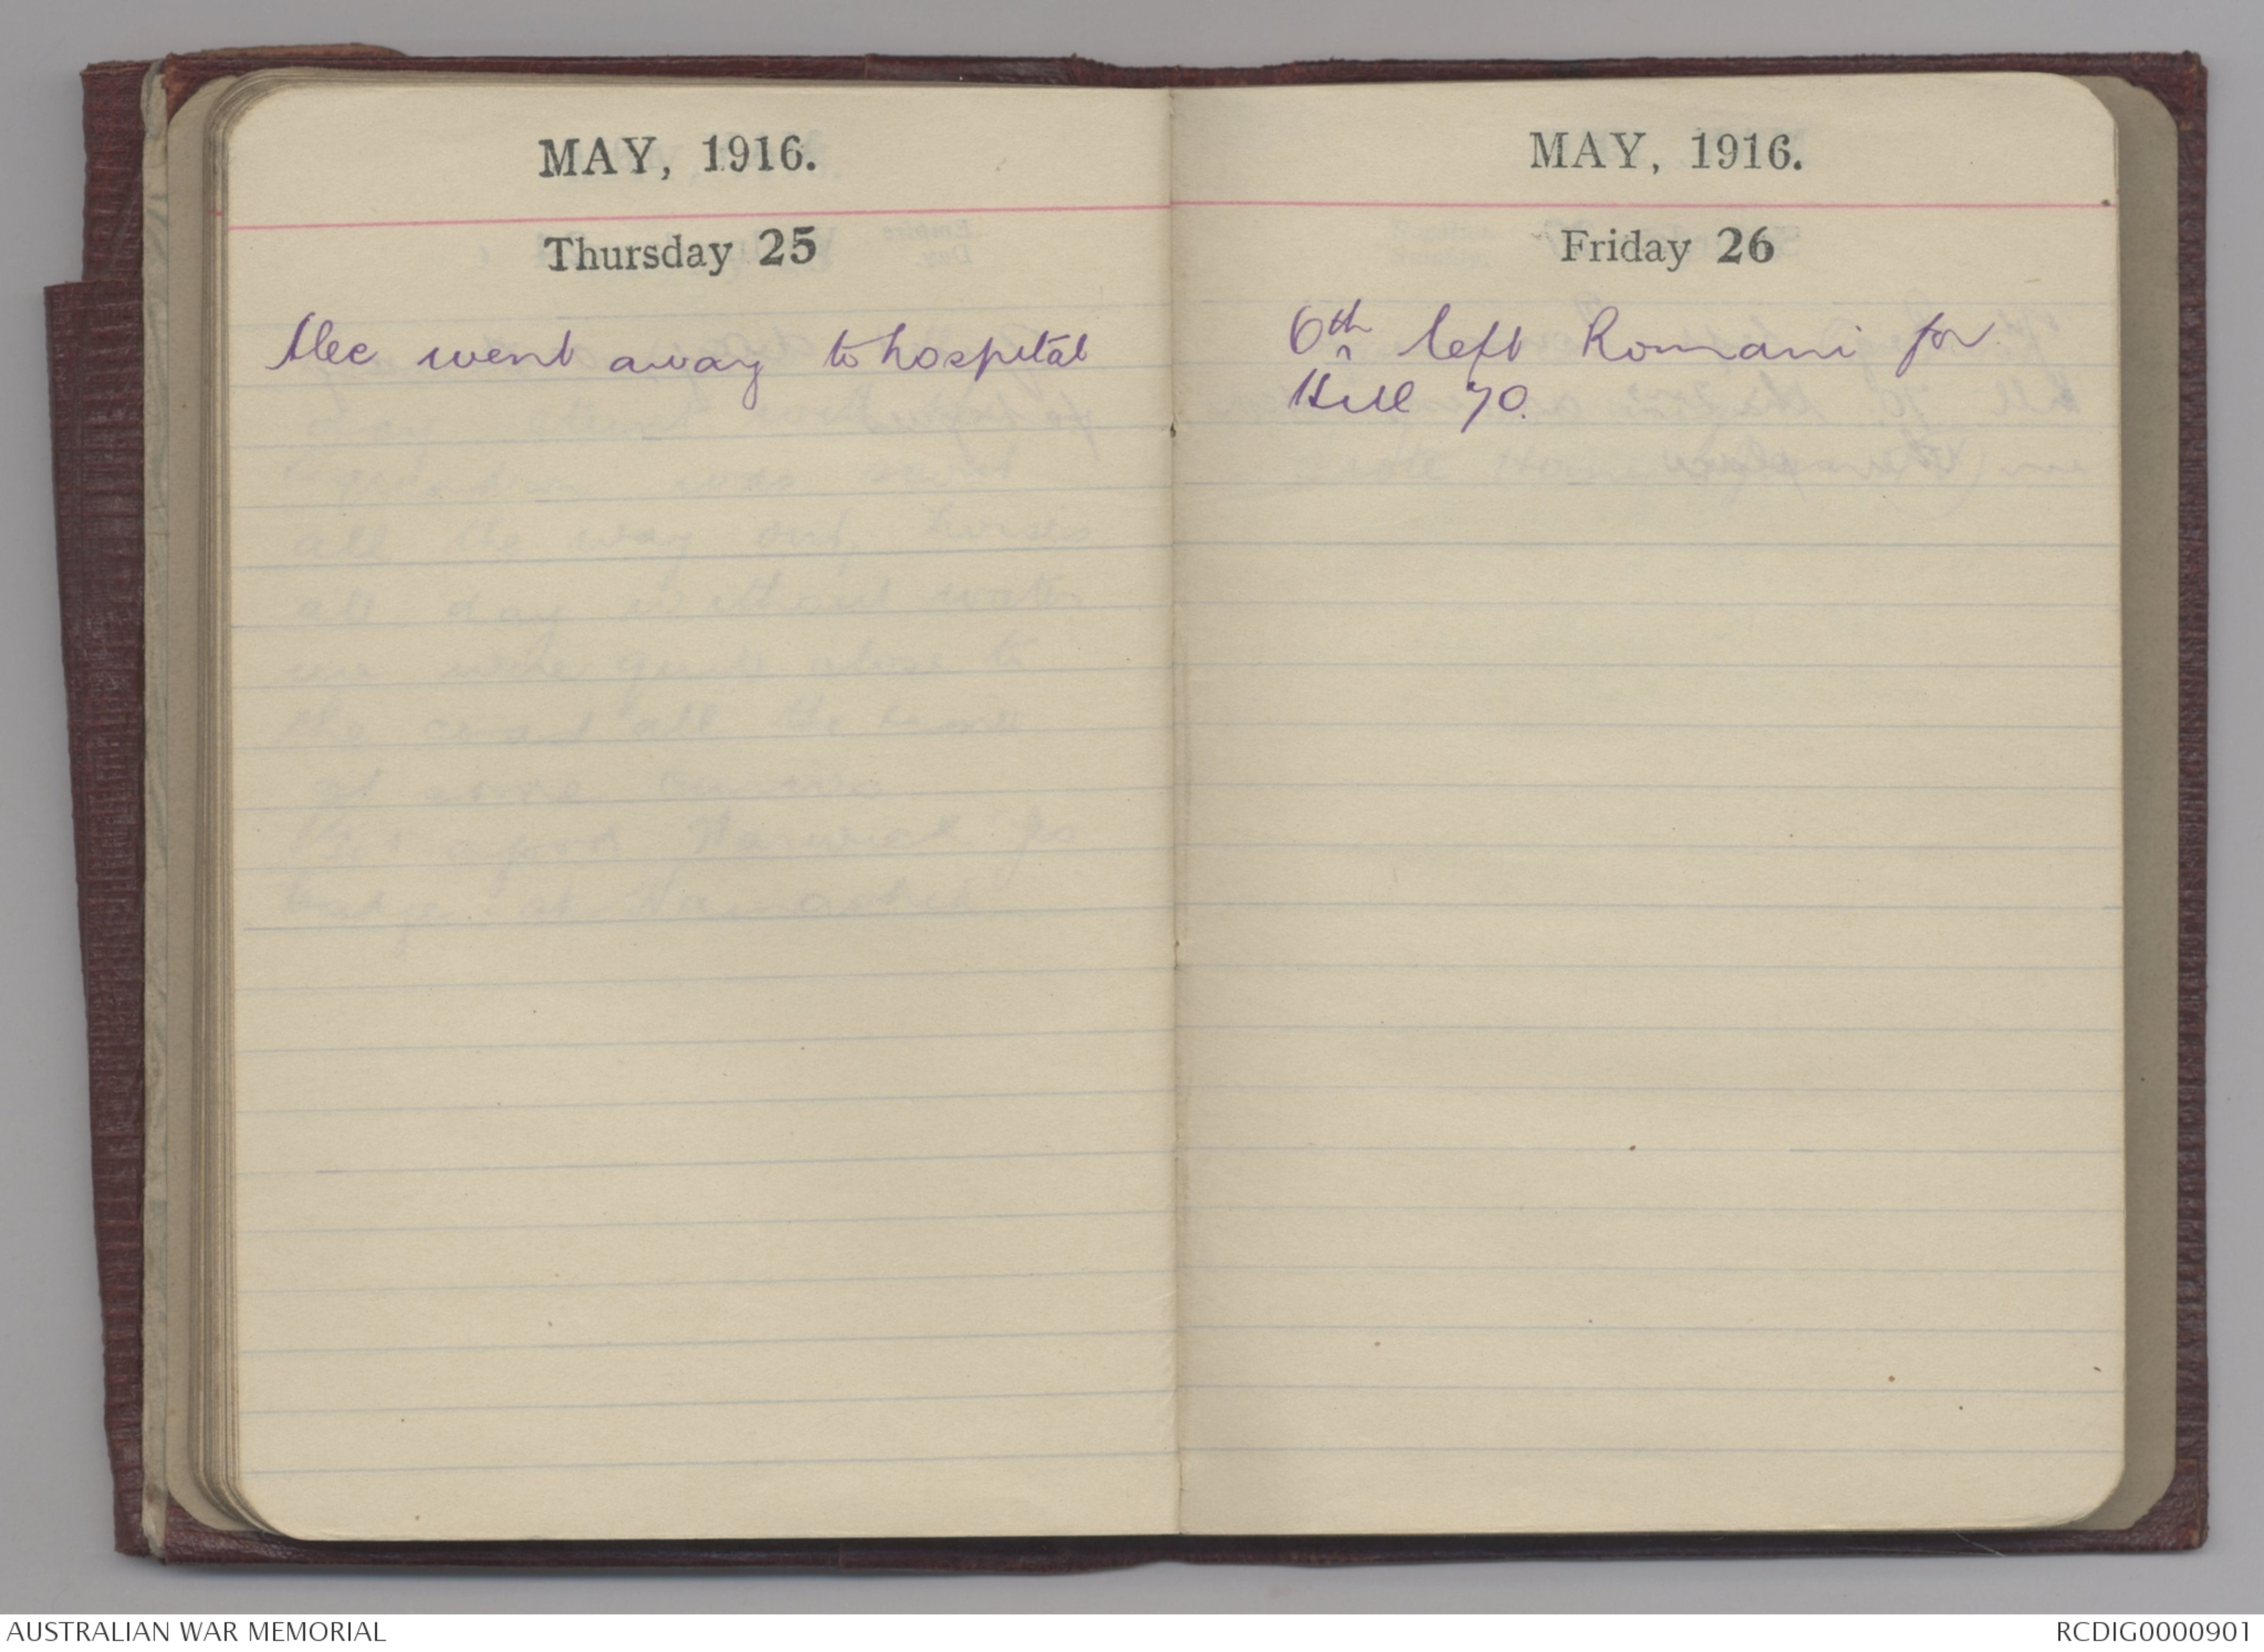 MAY, 1916.
Thursday 25
Alec went away to hospital
MAY, 1916.
Friday 26
6th left Romani for
Hill 70.
AUSTRALIAN WAR MEMORIAL
RCDIG0000901